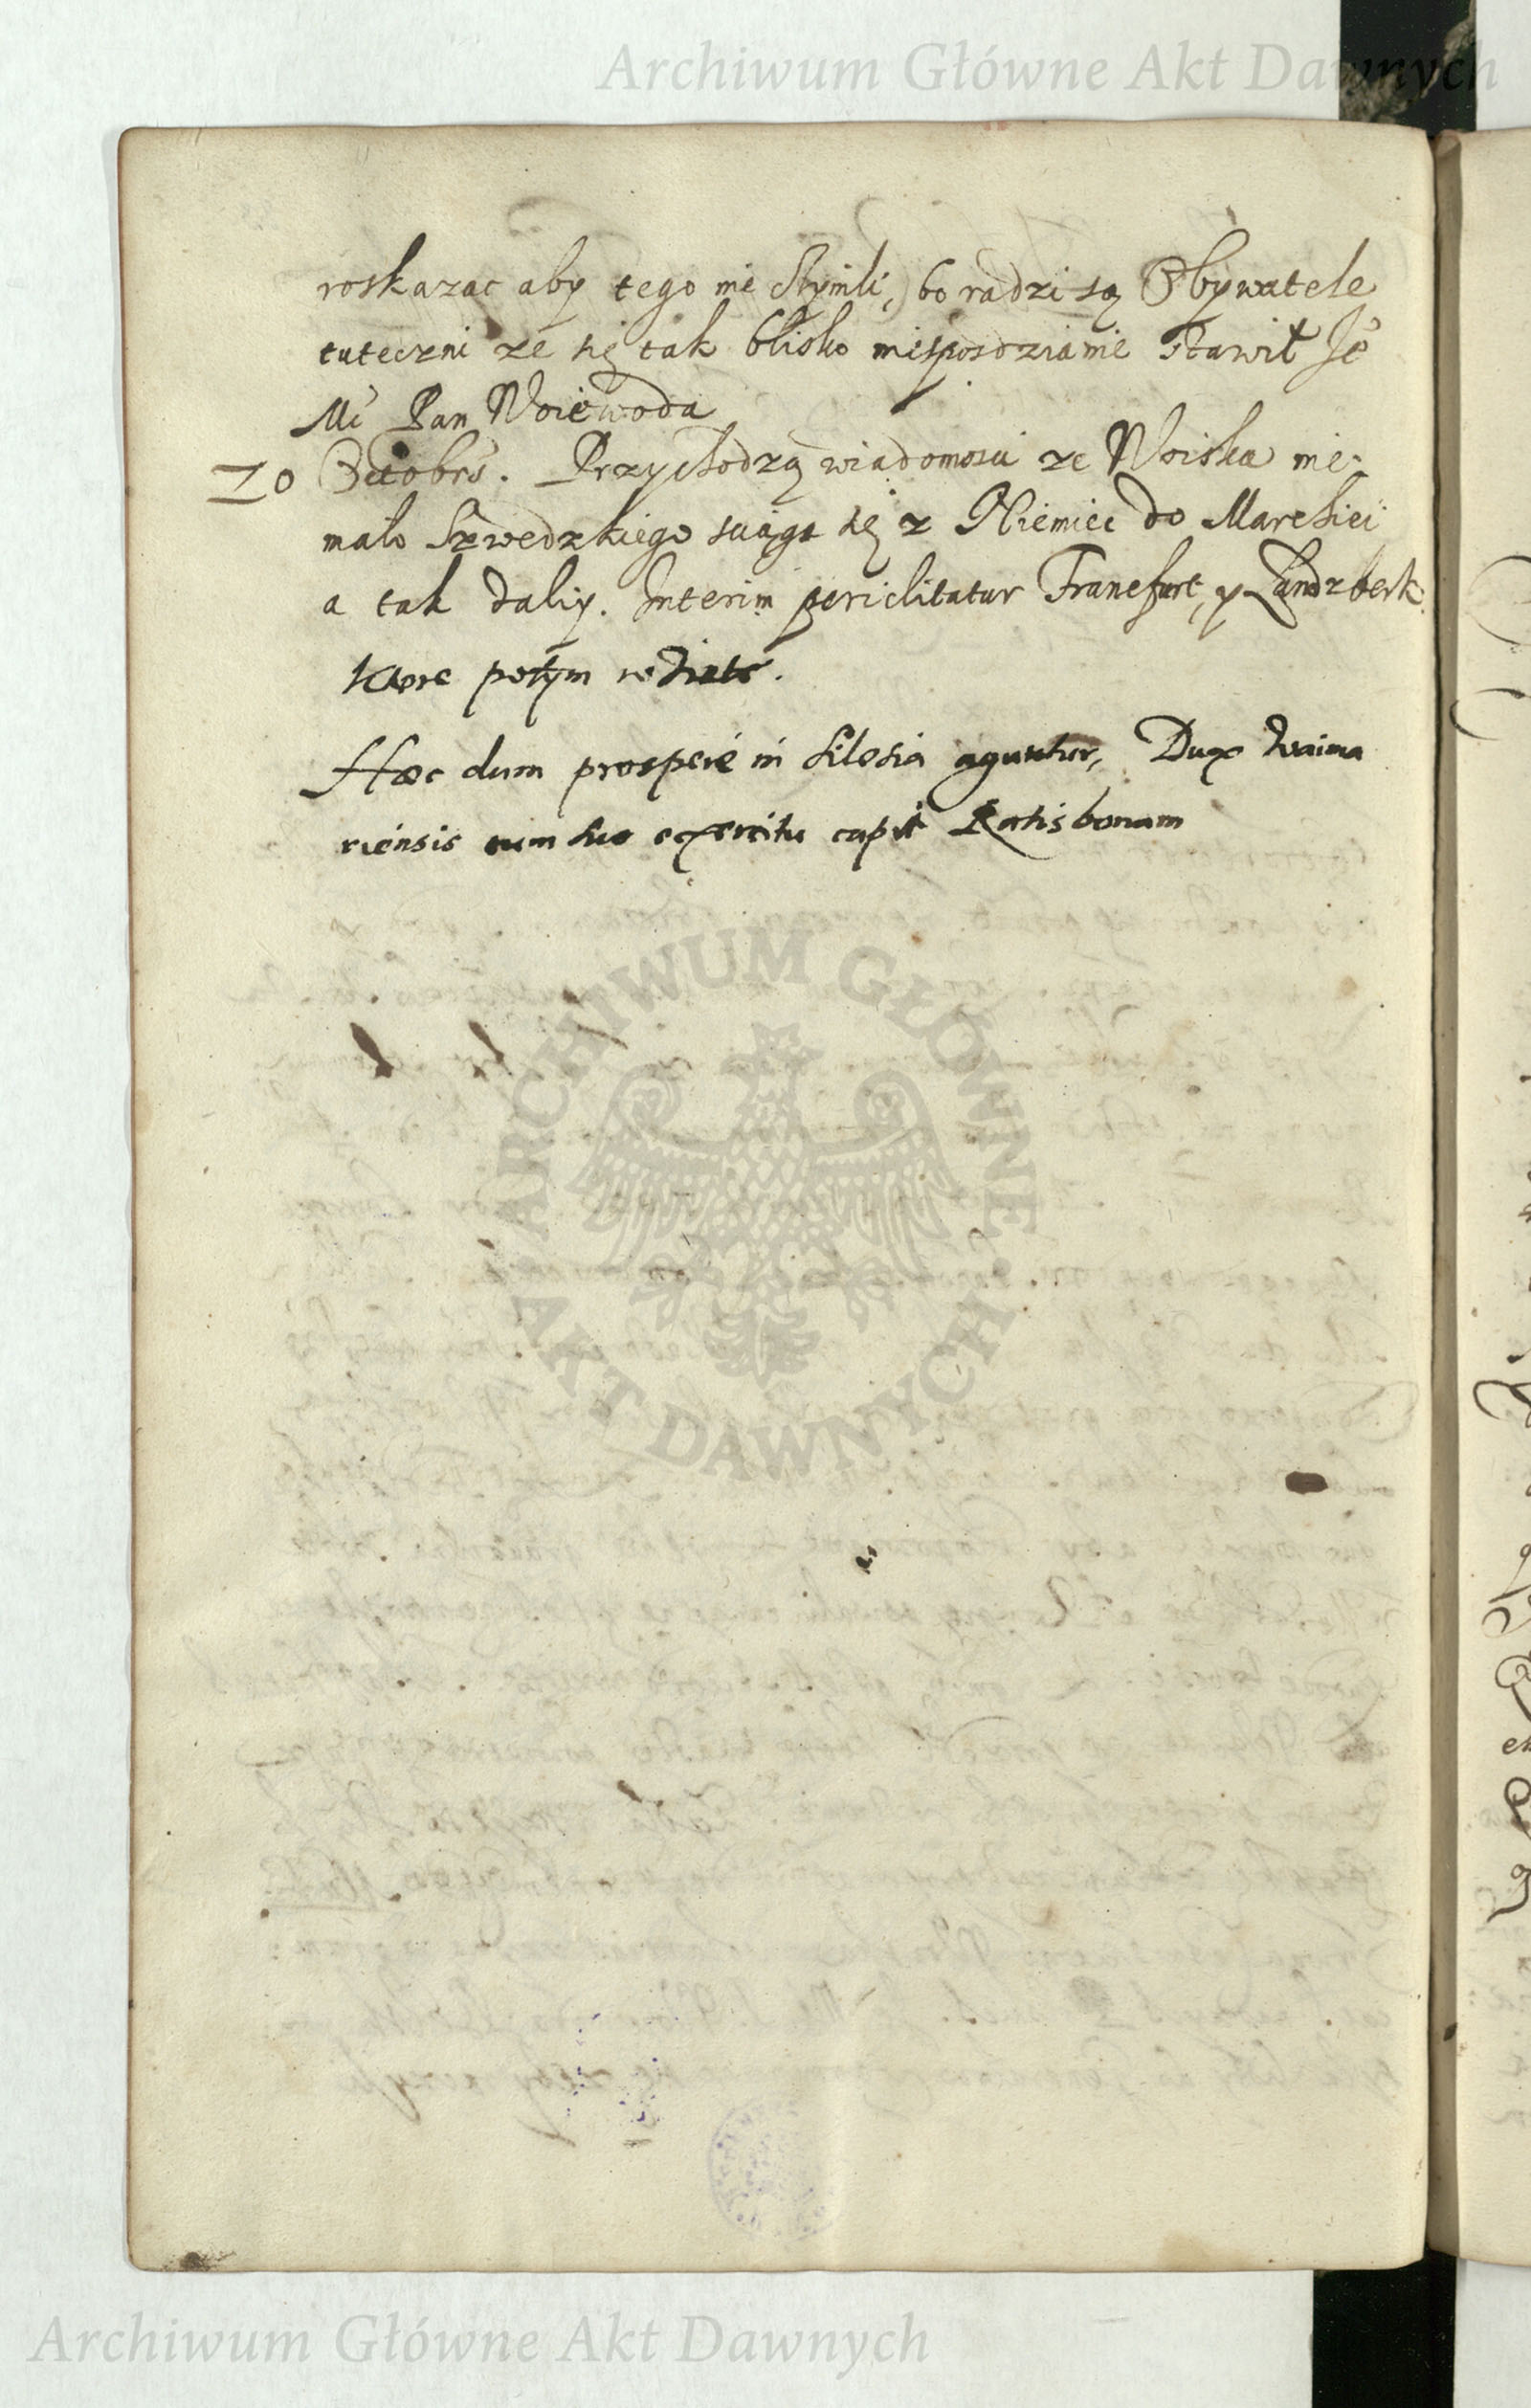 Archiwum Główne Akt Dawnych
roskazac aby tego nie czynili, bo radzi są Obywatele
tuteczni ze się tak blisko niespodzianie stawił Je
Mć Pan Woiewoda
10 Octobrs. Przychodzą wiadomosci ze Woiska nie-
mało Szwedzkiego sciąga się z Niemiec do Marchiei
a tak daliy. Interim periclitatur Francfurt, y Landzberk
ktore potym
Hæc dum prosperé in Silesia aguntur, Dux Waima
riensis cum suo exercitu capit Ratisbonam
ARCHIWUM GŁÓWNE
AKT DAWNYCH
Archiwum Główne Akt Dawnych